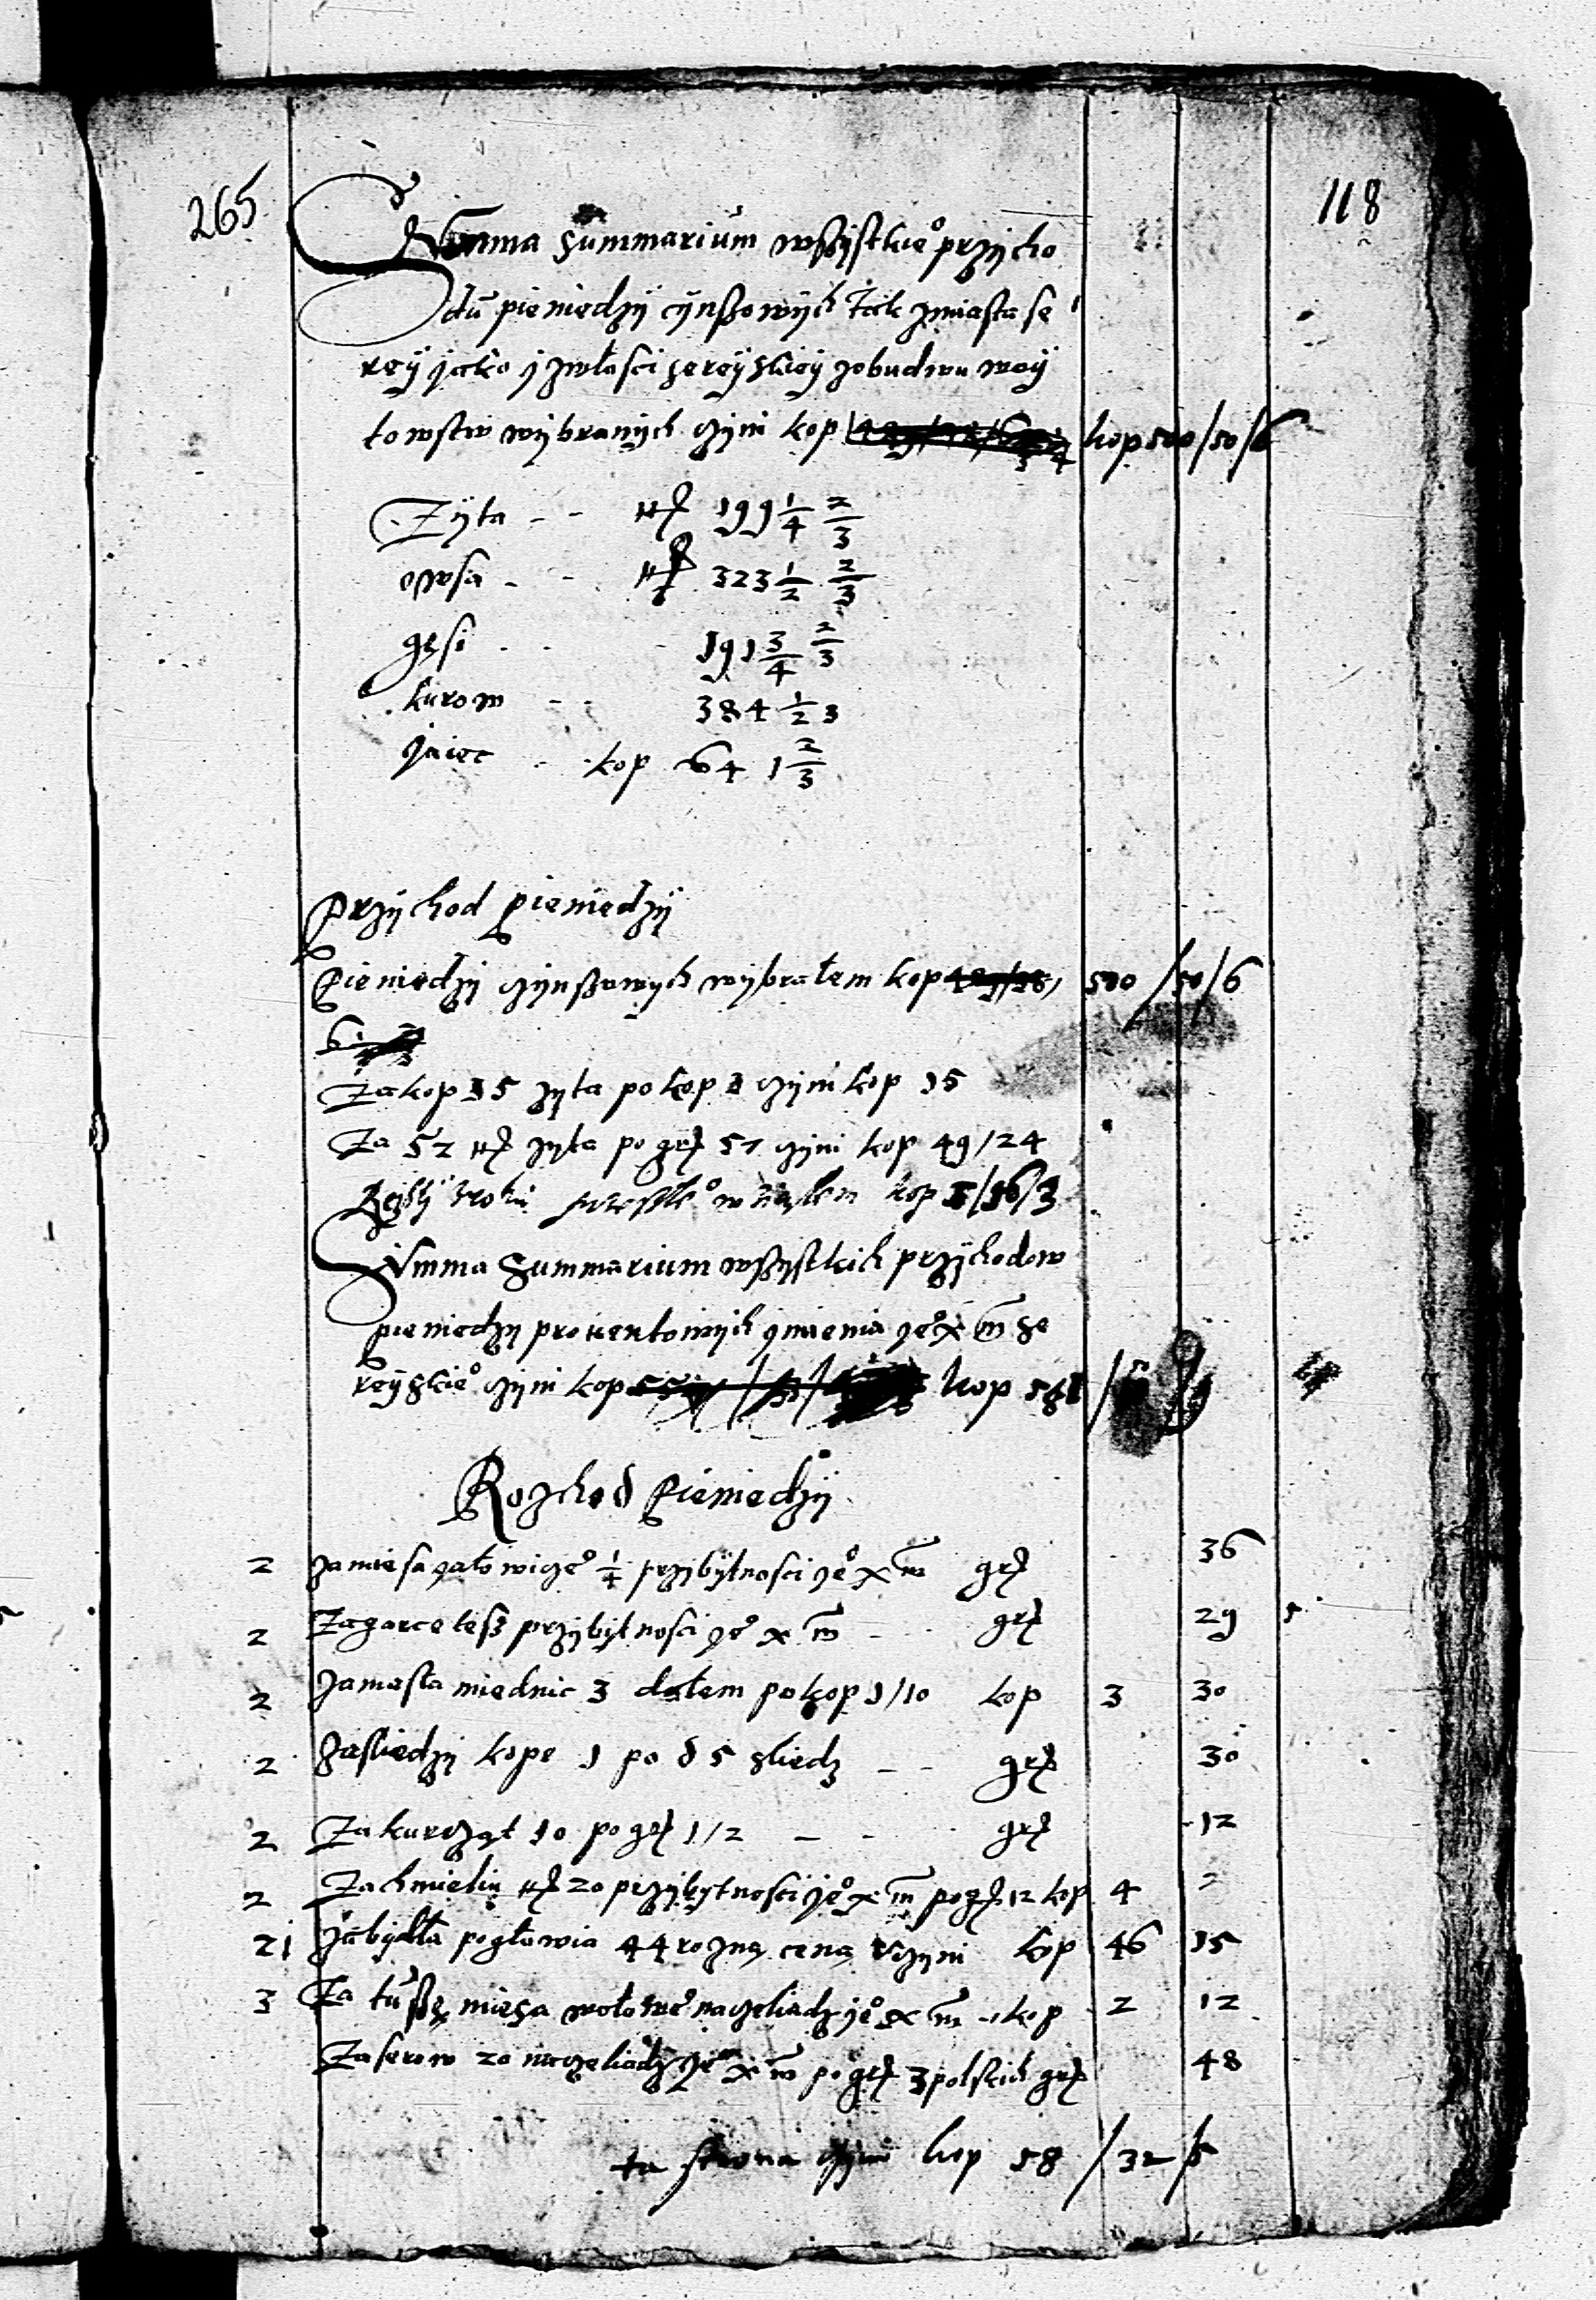 265
118
Summa Summarium wszystkie° przycho
du pieniedzy cynszowych tak zmiasta se
rey jako y zwłosci sereyskiey zobudwu woy
towstw wybranych czyni kop kop 500/50/6
Zyta - - 199 1/4 2/3
owsa - - 323 1/2 2/3
gęsi - - 191 3/4 2/3
kurow - - 384 1/2 3
Jaiec - kop 64 1 2/3
Przychod pieniedzy
Pieniedzy czynszowych wybrałem kop 500/50/6
6
Za kop 15 zyta po kop 1 czyni kop 15
Za 52 zyta po gr 57 czyni kop 49/24
kop /16/3
Summa Summarium wszystkich przychodow
pieniedzy prowentowych ymienia ye° x m se
reyskie° czyni kop kop
Rozchod Pieniedzy
2 za miesa jałowicze° 1/4 przybytnosci ye° x m gr 36
2 Za garce tesz przybytnosci ye° x m - - gr 29 5
2 za masła miednic 3 dałem po kop 1/10 kop 3 30
2 Za sliedzy kope 1 po d 5 sliedz - - gr 30
2 Za kurcząt 10 po gr 1/2 - - gr 12
2 Za chmieliu 20 przybytnosci ye° x m po gr 12 kop 4
21 za bydła pogławia 44 rozną ceną czyni kop 46 15
3 Za tuszę mięsa wołowe° na czeliadz ye° x m - kop 2 12
Za serow 20 na czeliadz ye° x m po gr 3 polskich gr 48
ta strona czyni kop 58/32/5